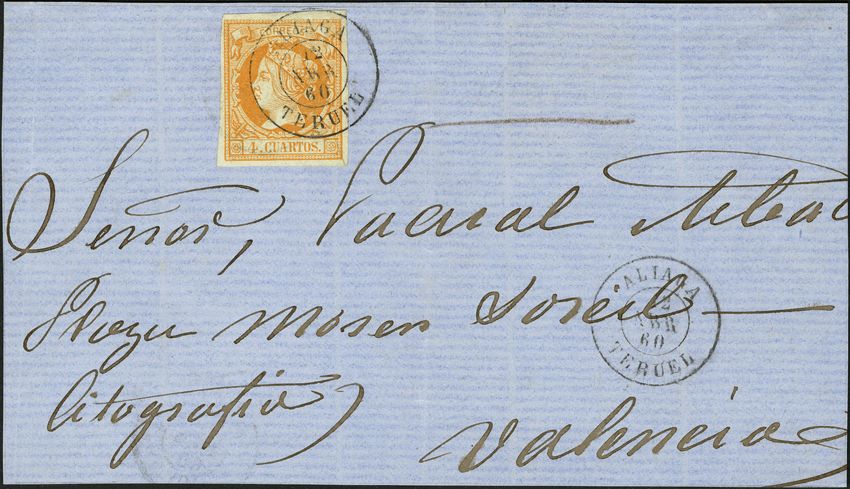 CORREOS
ALIAGA
12
ABR
60
TERUEL
4. CUARTOS.
Señor, Pascual
Plaza Mosen Sorell
ALIAGA
12
ABR
60
TERUEL
Litografia
Valencia